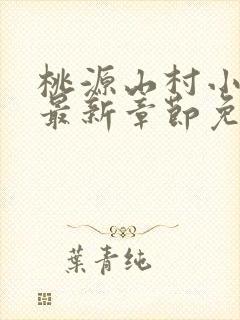 桃源山村小
最新章節免
葉青純